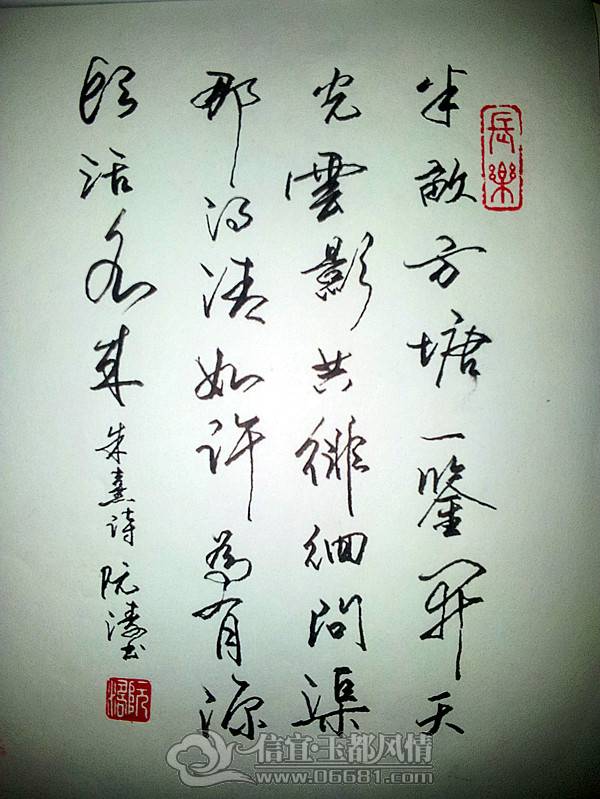 長樂
半畝方塘一鑒開天
光雲影共徘徊問渠
那得清如許為有源
頭活水來
朱熹詩 阮濤書
信宜·玉都风情
www.06681.com